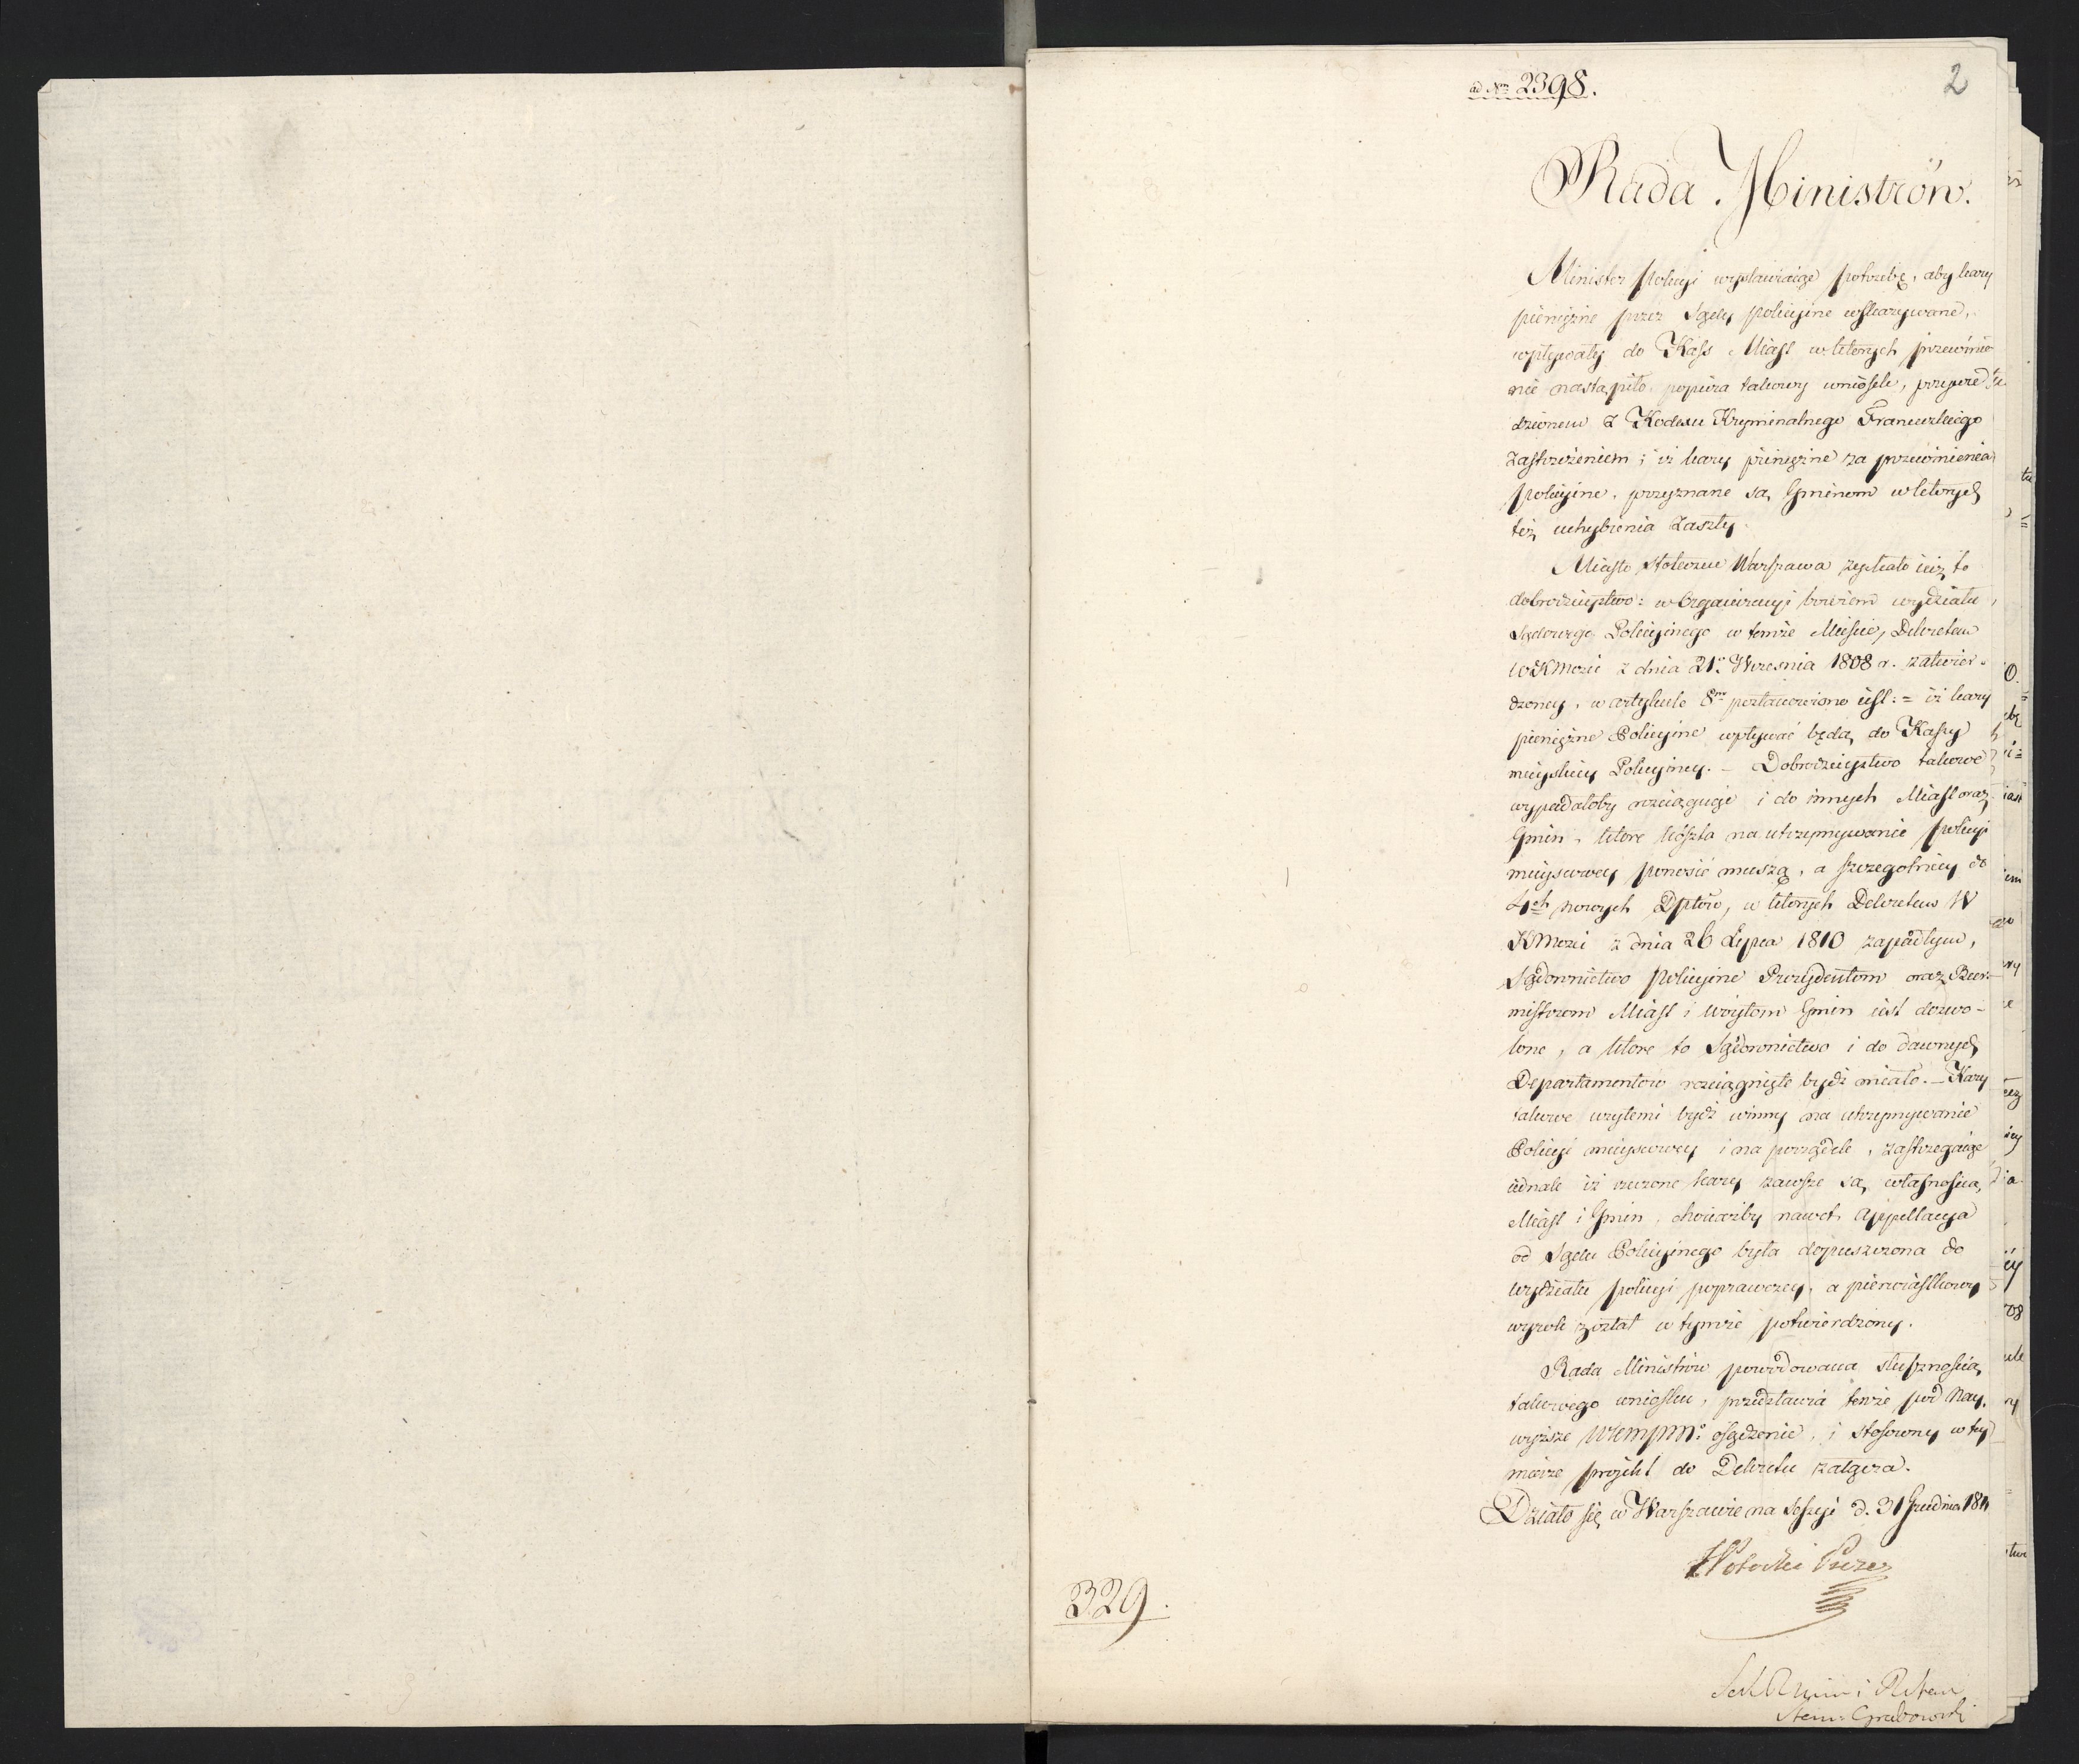 ad Nrm 2398.
2
Rada Ministrów.
Minister Policyi wystawiaiąc potrzebę, aby kary
pieniężne przez Sądy policyine wskazywane,
wpływały do Kass Miast w których przewinie
nie nastąpiło popiera takowy wniosek, przywie
dzionem z Kodexu Kryminalnego Francuzkiego
zastrzeżeniem; iż kary pieniężne za przewinienia
policyine, przyznane są Gminom w których
też uchybienia zaszły.
Miasto stołeczne Warszawa zyskało iuż to
dobrodzieystwo: w Organizacyi bowiem wydziału
Sądowego Policyinego w temże Mieście, Dekretem
WKMości z dnia 21o Września 1808 r. zatwier-
dzoney, w artykule 8m postanowiono iest: = iż kary
pieniężne Policyine wpływać będą do Kassy
mieyskiey Policyiney. – Dobrodzieystwo takowe
wypadałoby rozciągnąć i do innych Miast oraz
Gmin, które koszta na utrzymywanie policyi
mieyscowey ponosić muszą, a szczególniey do
4ch nowych Dptów, w których Dekretem W
KMości z dnia 26 Lipca 1810 zapadłym,
Sądownictwo policyine Prezydentom oraz Bur-
mistrzom Miast i Wóytom Gmin iest dozwo-
lone, a które to Sądownictwo i do dawnych
Departamentów rozciągnięte bydź miało. – Kary
takowe użytemi bydź winny na utrzymywanie
Policyi mieyscowey i na porządek, zastrzegaiąc
iednak iż rzeczone kary zawsze są własnością
Miast i Gmin, chociażby nawet Appellacya
od Sądu Policyinego była dopuszczona do
wydziału policyi poprawczey, a pierwiastkowy
wyrok został w tymże potwierdzony.
Rada Ministrów powodowana słusznością
takowego wniosku, przedstawia tenże pod Nay-
wyższe WKMPMo osądzenie, i stosowny w tey
mierze projekt do Dekretu załącza.
Działo się w Warszawie na Sessyi d. 31 Grudnia 1811
Potocki Prezes
329.
Grabowski